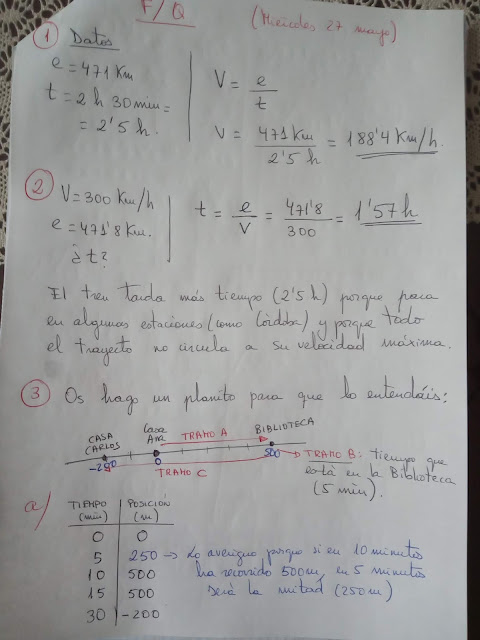 F/Q (Miércoles 27 mayo)
① Datos
e = 471 Km
t = 2 h 30 min =
= 2'5 h.
V = e/t
V = 471 Km / 2'5 h = 188'4 Km/h.
② V = 300 Km/h
e = 471'8 Km.
¿t?
t = e/V = 471'8/300 = 1'57 h
El tren tarda más tiempo (2'5 h) porque para
en algunas estaciones (como Córdoba) y porque todo
el trayecto no circula a su velocidad máxima.
③ Os hago un planito para que lo entendáis:
CASA CARLOS
Casa Ana
TRAMO A
BIBLIOTECA
0
500
TRAMO C
TRAMO B: tiempo que
está en la Biblioteca
(5 min).
a/
TIEMPO (min) POSICIÓN (m)
0 0
5 250 → Lo averiguo porque si en 10 minutos
10 500 ha recorrido 500m, en 5 minutos
15 500 será la mitad (250m)
30 -200